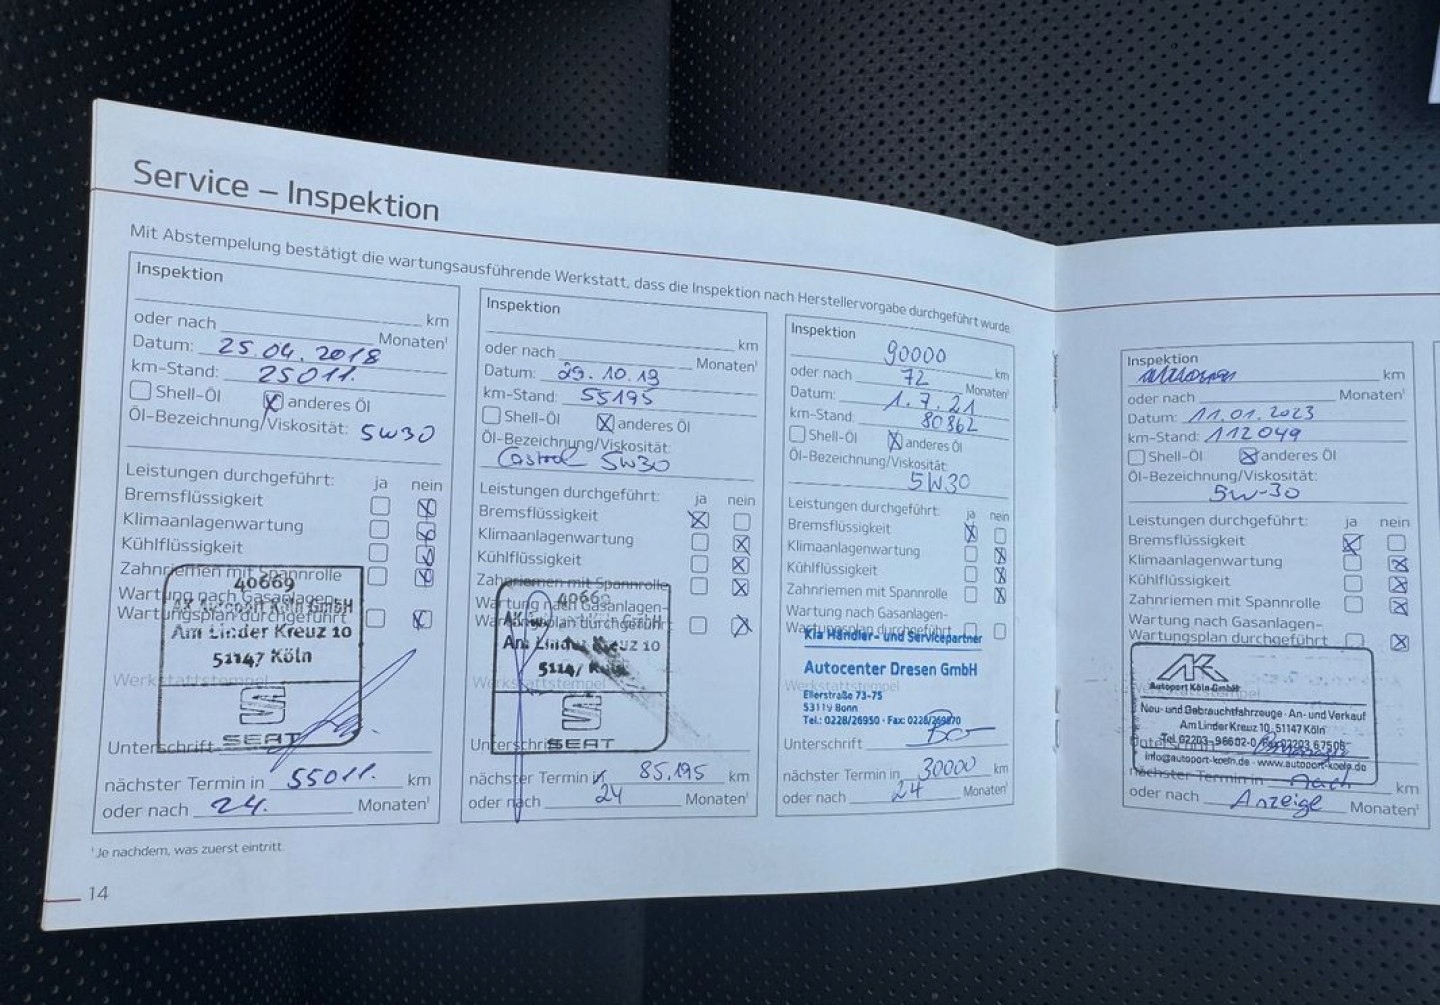 Service – Inspektion
Mit Abstempelung bestätigt die wartungsausführende Werkstatt, dass die Inspektion nach Herstellervorgabe durchgeführt wurde.
Inspektion
km
oder nach Monaten¹
Datum: 25.04.2018
km-Stand: 25011.
Shell-Öl anderes Öl
Öl-Bezeichnung/Viskosität: 5W30
Leistungen durchgeführt: ja nein
Bremsflüssigkeit
Klimaanlagenwartung
Kühlflüssigkeit
Zahnriemen mit Spannrolle
Wartung nach Gasanlagen-
Wartungsplan durchgeführt
40669
AK Autoport Köln GmbH
Am Linder Kreuz 10
51147 Köln
Werkstattstempel
SEAT
Unterschrift
nächster Termin in 55011. km
oder nach 24. Monaten¹
Inspektion
km
oder nach Monaten¹
Datum: 29.10.19
km-Stand: 55195
Shell-Öl anderes Öl
Öl-Bezeichnung/Viskosität:
Castrol 5W30
Leistungen durchgeführt: ja nein
Bremsflüssigkeit
Klimaanlagenwartung
Kühlflüssigkeit
Zahnriemen mit Spannrolle
Wartung nach Gasanlagen-
Wartungsplan durchgeführt
40669
GmbH
Am Linder Kreuz 10
51147 Köln
Werkstattstempel
SEAT
Unterschrift
nächster Termin in 85.195 km
oder nach 24 Monaten¹
Inspektion
90000 km
oder nach 72 Monaten¹
Datum: 1.7.21
km-Stand: 80862
Shell-Öl anderes Öl
Öl-Bezeichnung/Viskosität:
5W30
Leistungen durchgeführt: ja nein
Bremsflüssigkeit
Klimaanlagenwartung
Kühlflüssigkeit
Zahnriemen mit Spannrolle
Wartung nach Gasanlagen-
Wartungsplan durchgeführt
Kia Händler- und Servicepartner
Autocenter Dresen GmbH
Werkstattstempel
Ellerstraße 73-75
53119 Bonn
Tel.: 0228/26950 · Fax: 0228/269870
Unterschrift
nächster Termin in 30000 km
oder nach 24 Monaten¹
¹Je nachdem, was zuerst eintritt.
14
Inspektion
km
oder nach Monaten¹
Datum: 11.01.2023
km-Stand: 112049
Shell-Öl anderes Öl
Öl-Bezeichnung/Viskosität:
5W-30
Leistungen durchgeführt: ja nein
Bremsflüssigkeit
Klimaanlagenwartung
Kühlflüssigkeit
Zahnriemen mit Spannrolle
Wartung nach Gasanlagen-
Wartungsplan durchgeführt
AK
Autoport Köln GmbH
Neu- und Gebrauchtfahrzeuge · An- und Verkauf
Am Linder Kreuz 10, 51147 Köln
Tel. 02203-96602-0
info@autoport-koeln.de · www.autoport-koeln.de
nächster Termin in nach km
oder nach Anzeige Monaten¹